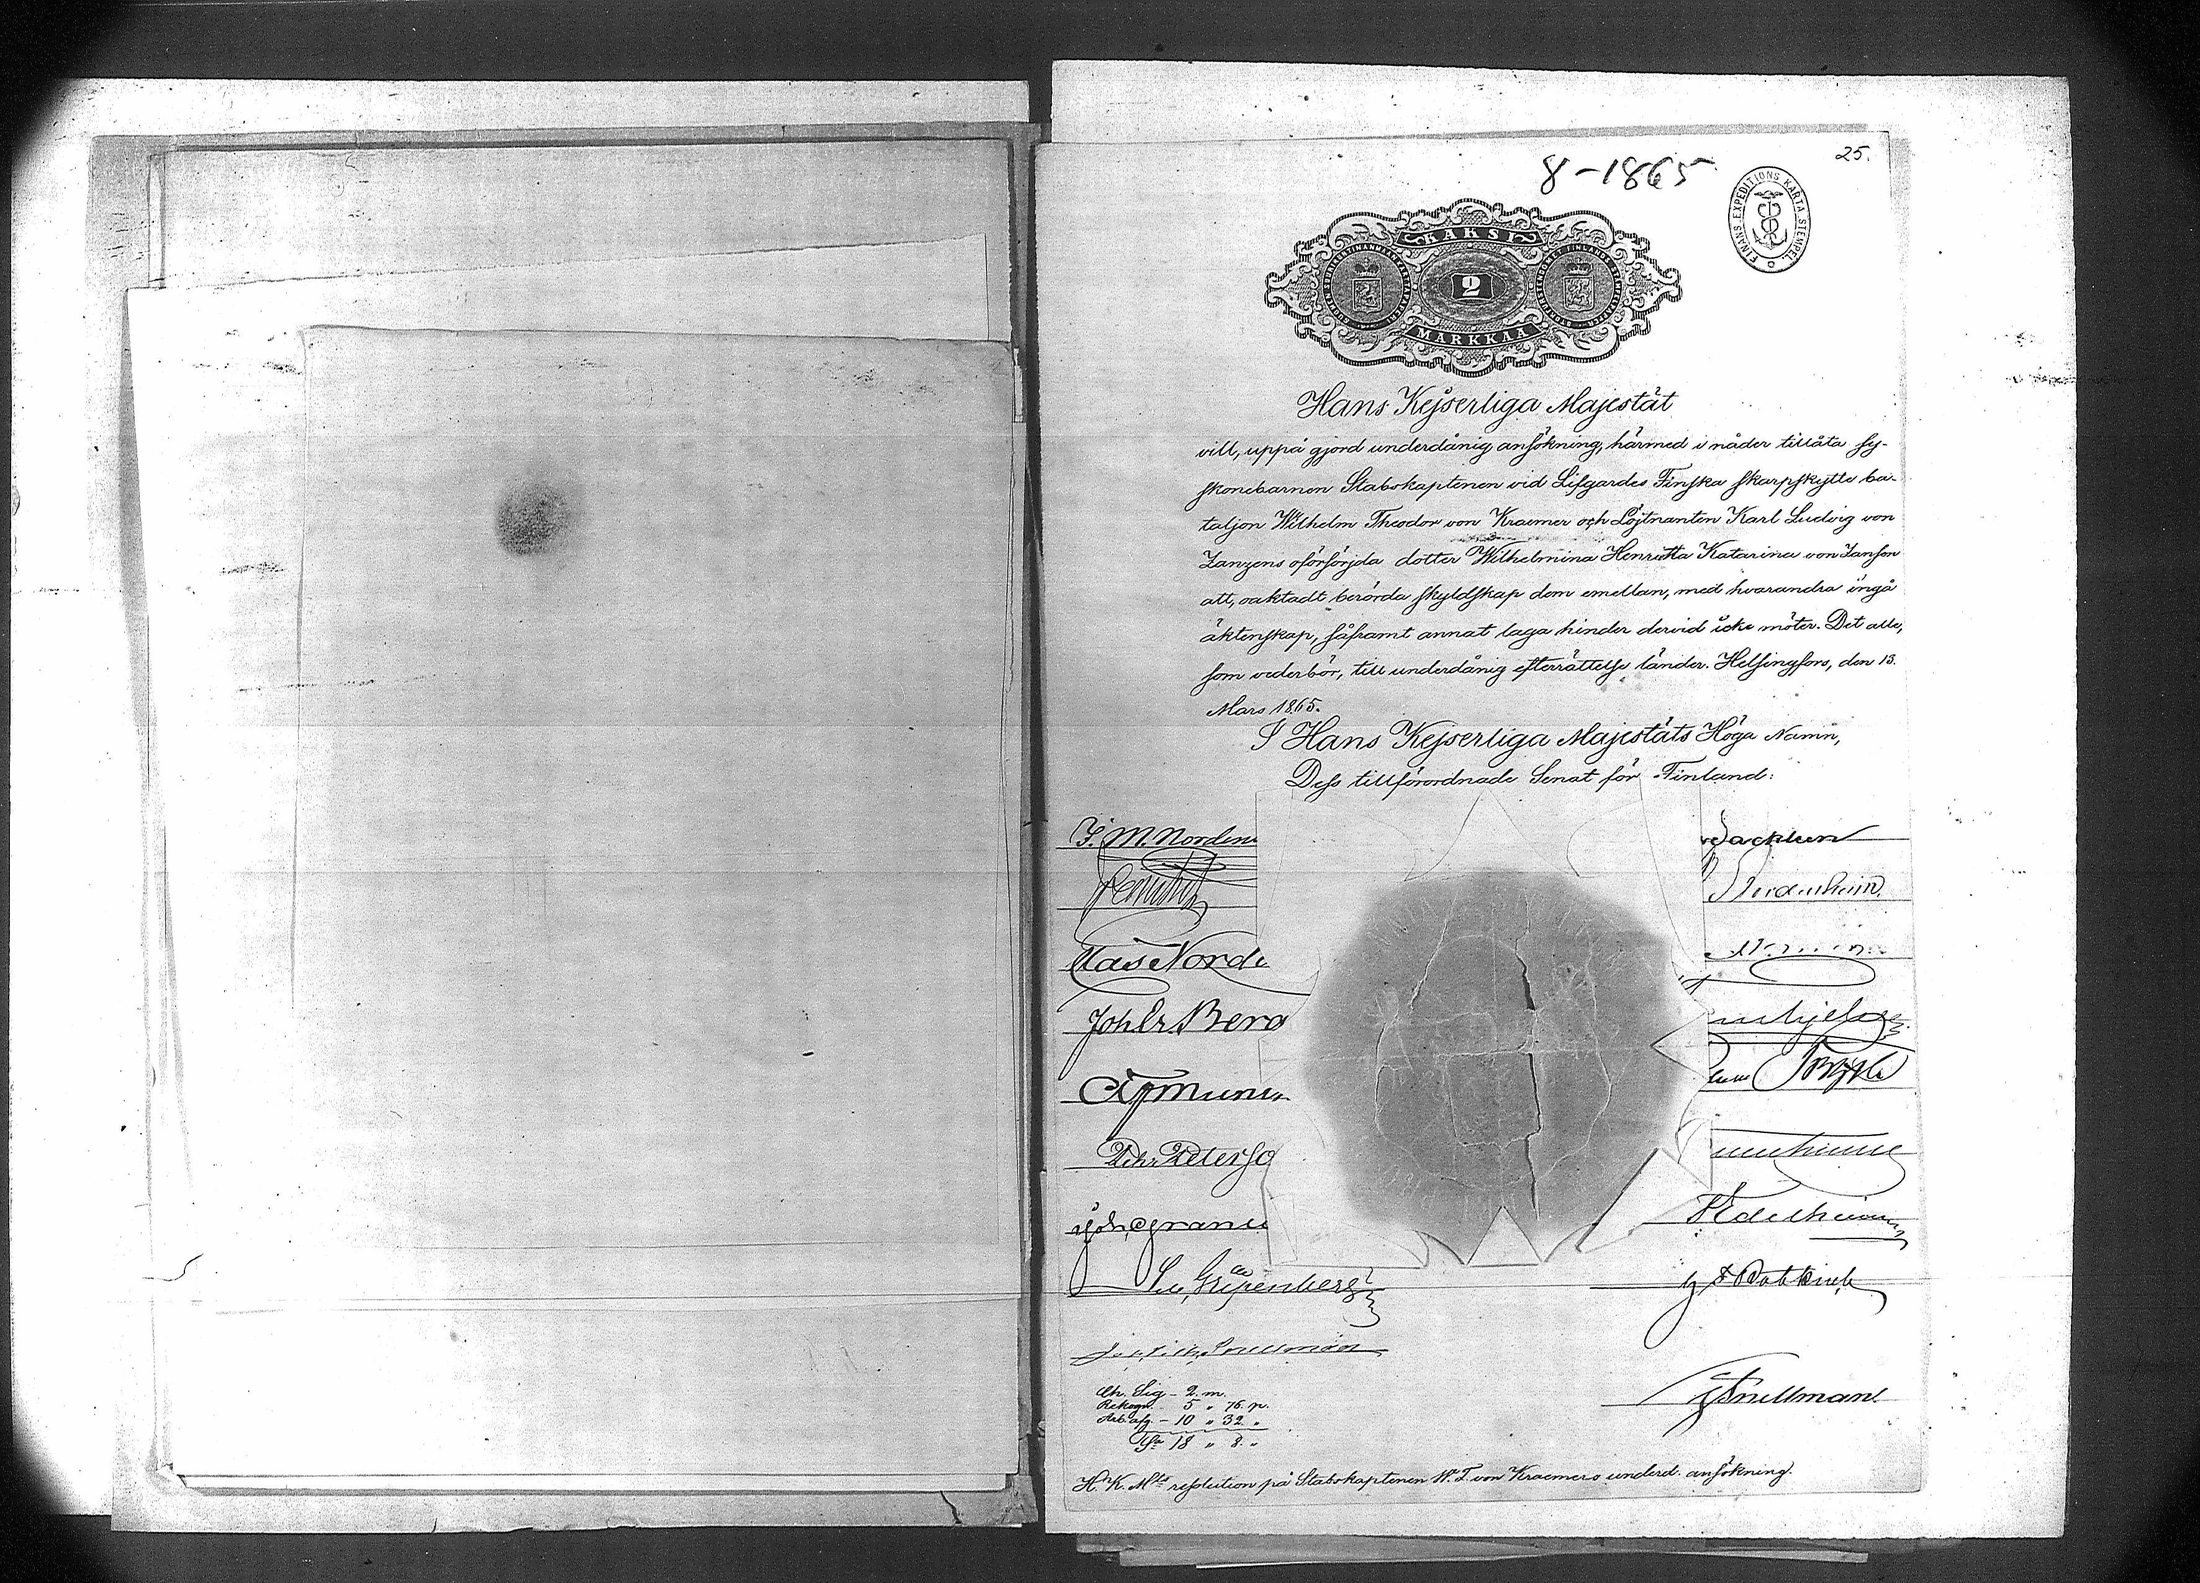 25.
8-1865
FINANS-EXPEDITIONS KARTA STEMPEL
KAKSI
2
MARKKAA
Hans Kejserliga Majestät
vill, uppå gjord underdånig ansökning, härmed i nåder tillåta sy-
skonebarnen Stabskaptenen vid Lifgardes Finska skarpskytte ba-
taljon Wilhelm Theodor von Kraemer och Löjtnanten Karl Ludvig von
Zanzens oförsörjda dotter Wilhelmina Henrietta Katarina von Zanson
att, oaktadt berörda skyldskap dem emellan, med hvarandra ingå
äktenskap, såframt annat laga hinder dervid icke möter. Det alle,
som vederbör, till underdånig efterrättelse länder. Helsingfors, den 13.
Mars 1865.
I Hans Kejserliga Majestäts Höga Namn,
Dess tillförordnade Senat för Finland:
J. M. Norden
Clas Norde
Joh Er Berg
Joh. Gran
Seb. Gripenberg
Edelheim
Snellman
Ch. Sig - 2. m.
Rekogn. - 5 " 76. p.
Arb. afg. - 10 " 32 "
S:a 18 " 8. "
H. K. M:ts resolution på Stabskaptenen W. T. von Kraemers underd. ansökning.